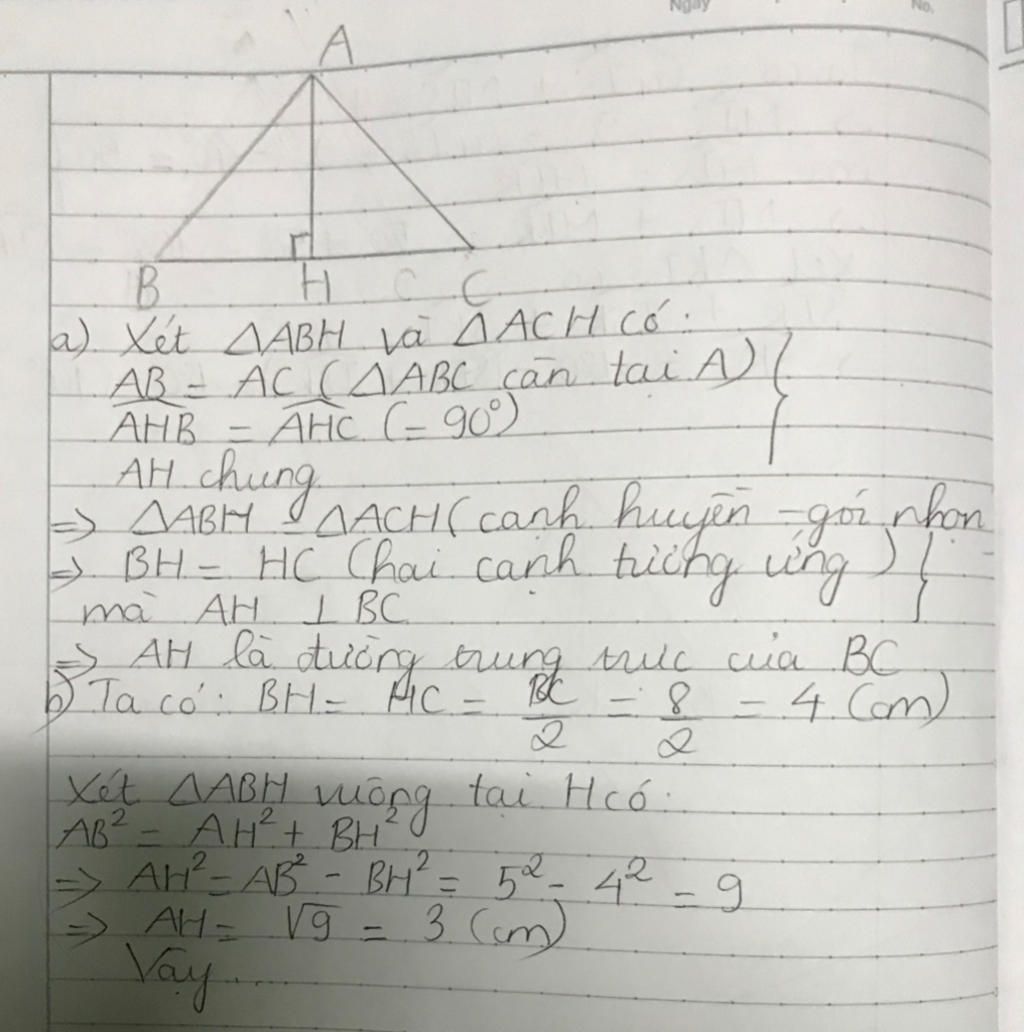 Ngày No.
A
B H C C
a) Xét ΔABH và ΔACH có:
AB = AC (ΔABC cân tại A)
\widehat{AHB} = \widehat{AHC} (= 90°)
AH chung
=> ΔABH = ΔACH (cạnh huyền - gói nhọn
=> BH = HC (hai cạnh tương ứng)
mà AH ⊥ BC
=> AH là đường trung trực của BC
b) Ta có: BH = HC = BC/2 = 8/2 = 4 (cm)
Xét ΔABH vuông tại H có:
AB² = AH² + BH²
=> AH² = AB² - BH² = 5² - 4² = 9
=> AH = √9 = 3 (cm)
Vậy....